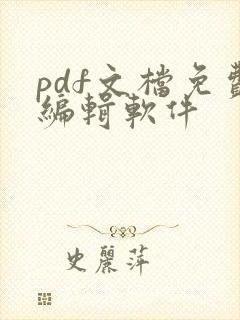 pdf文檔免費
編輯軟件
史麗萍